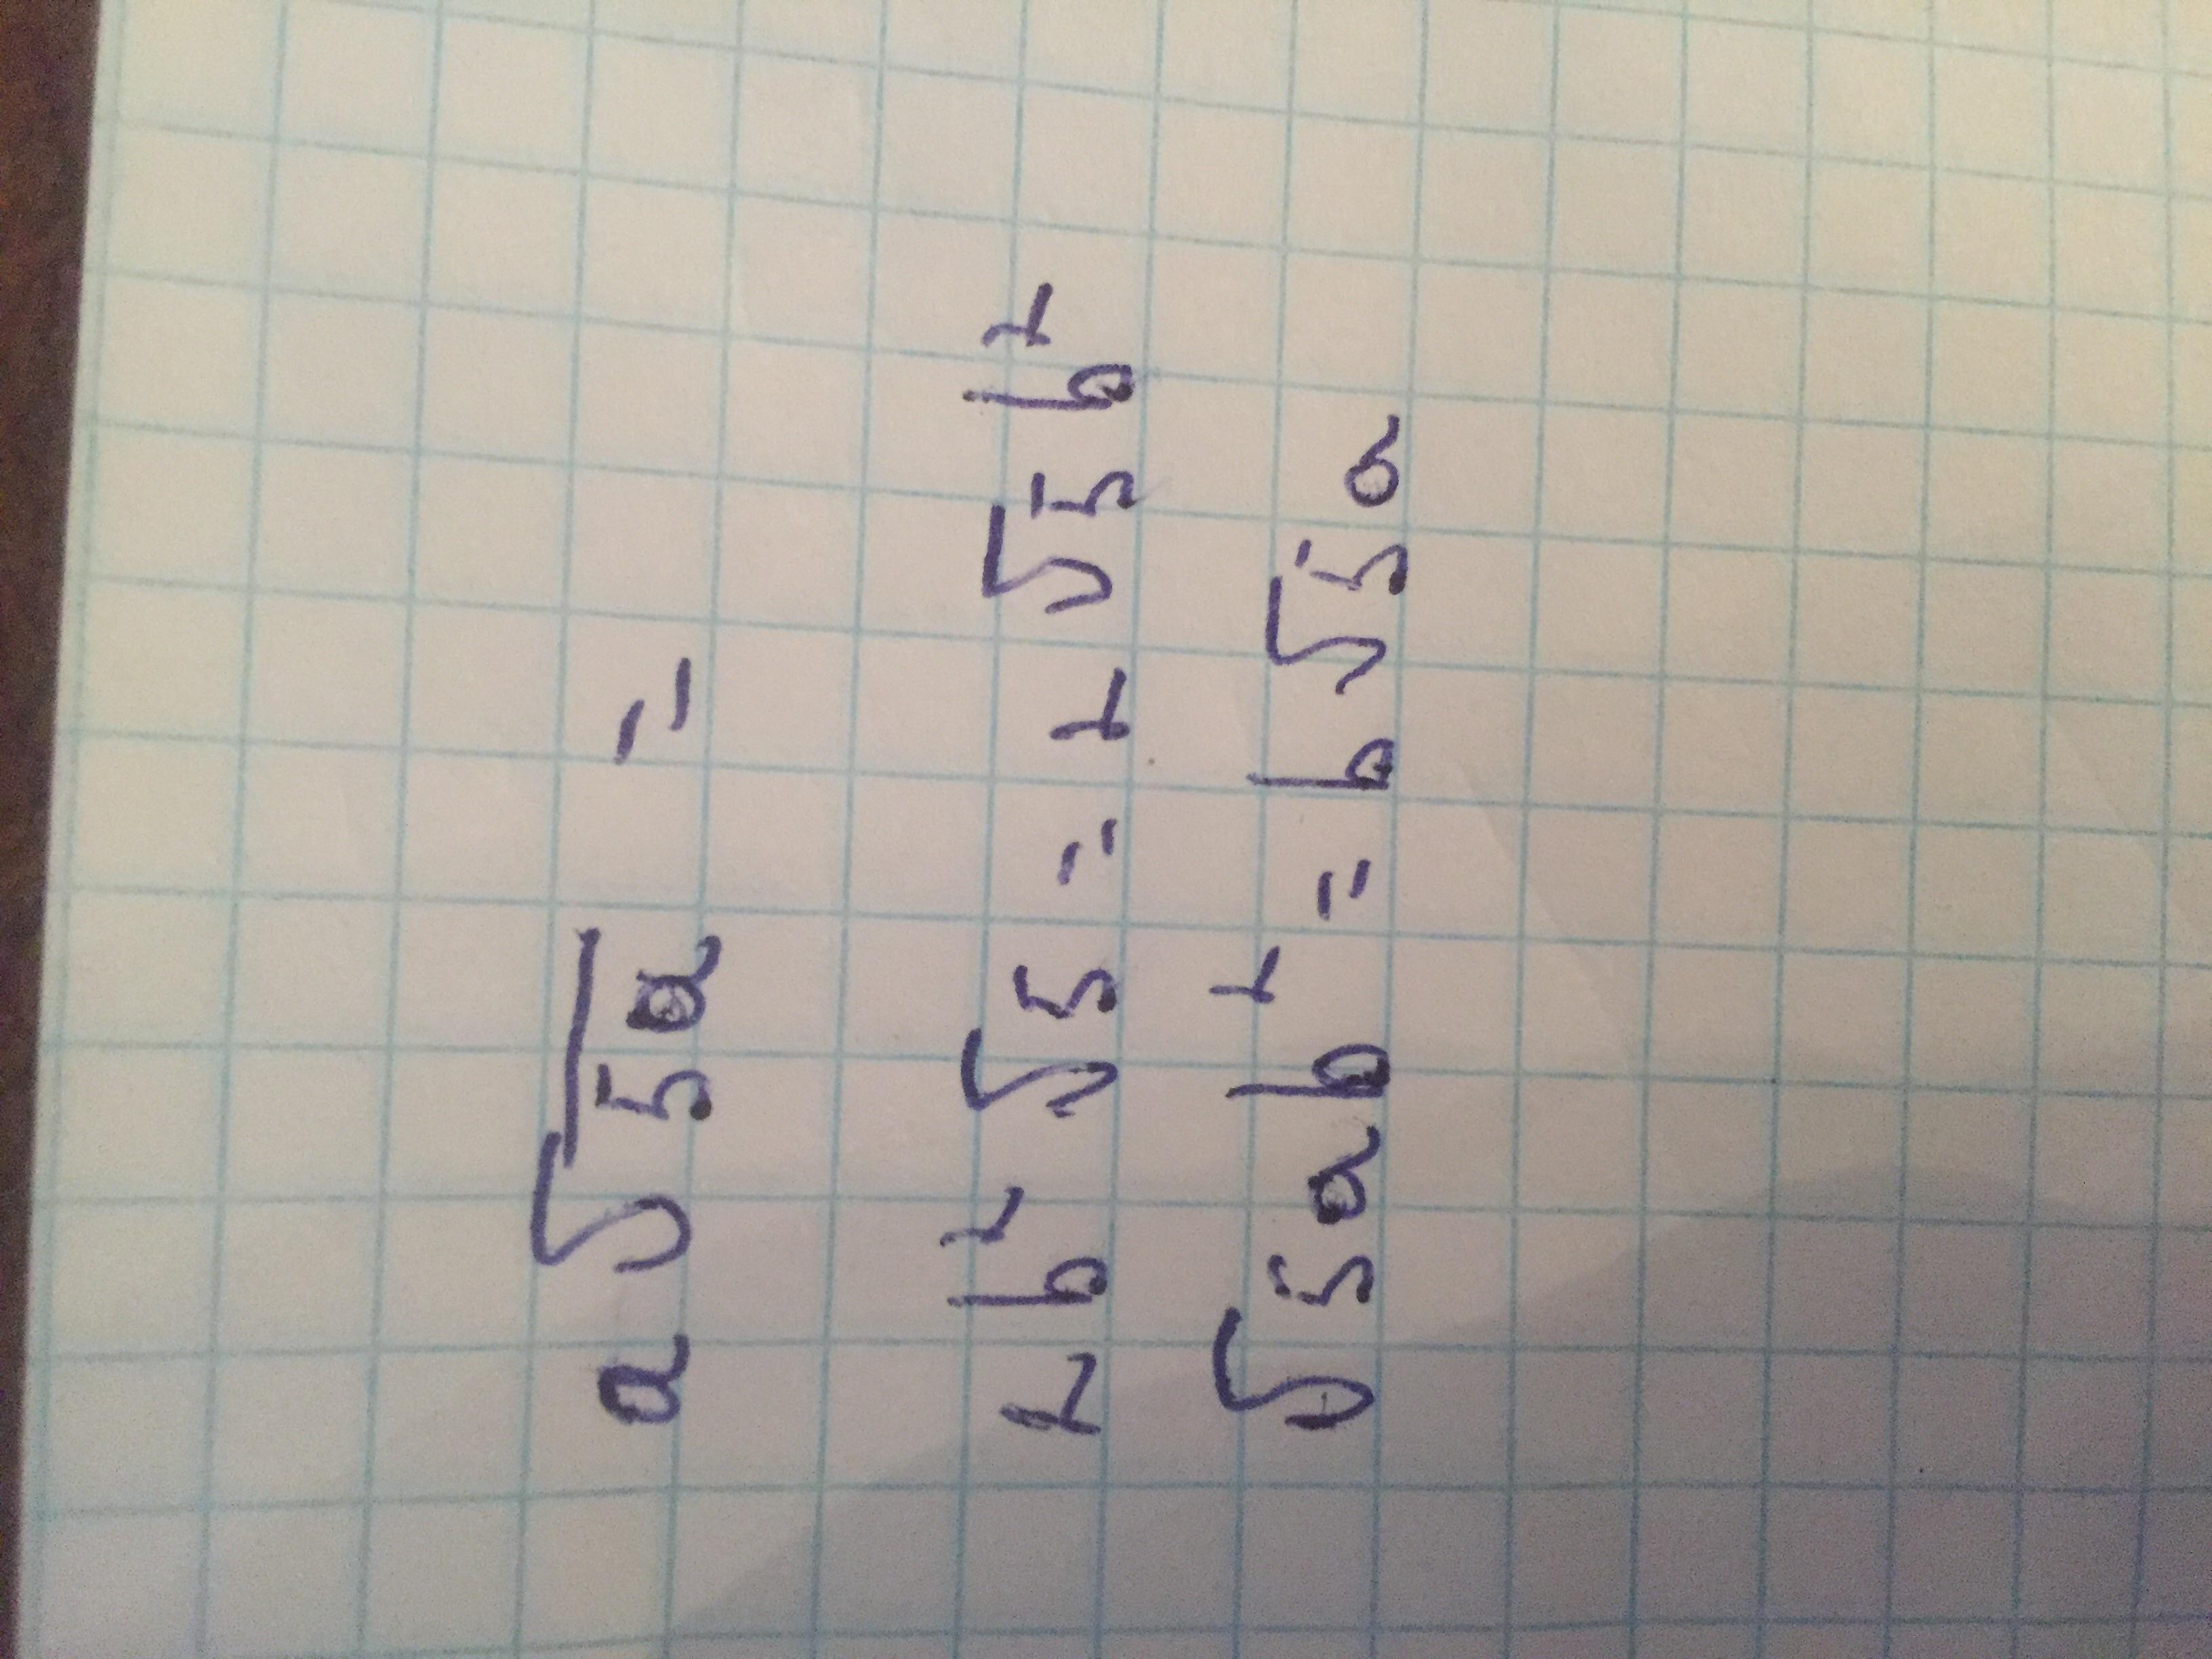 a √5a =
2 b² √5 = 2 √5 b²
√5ab² = b √5a